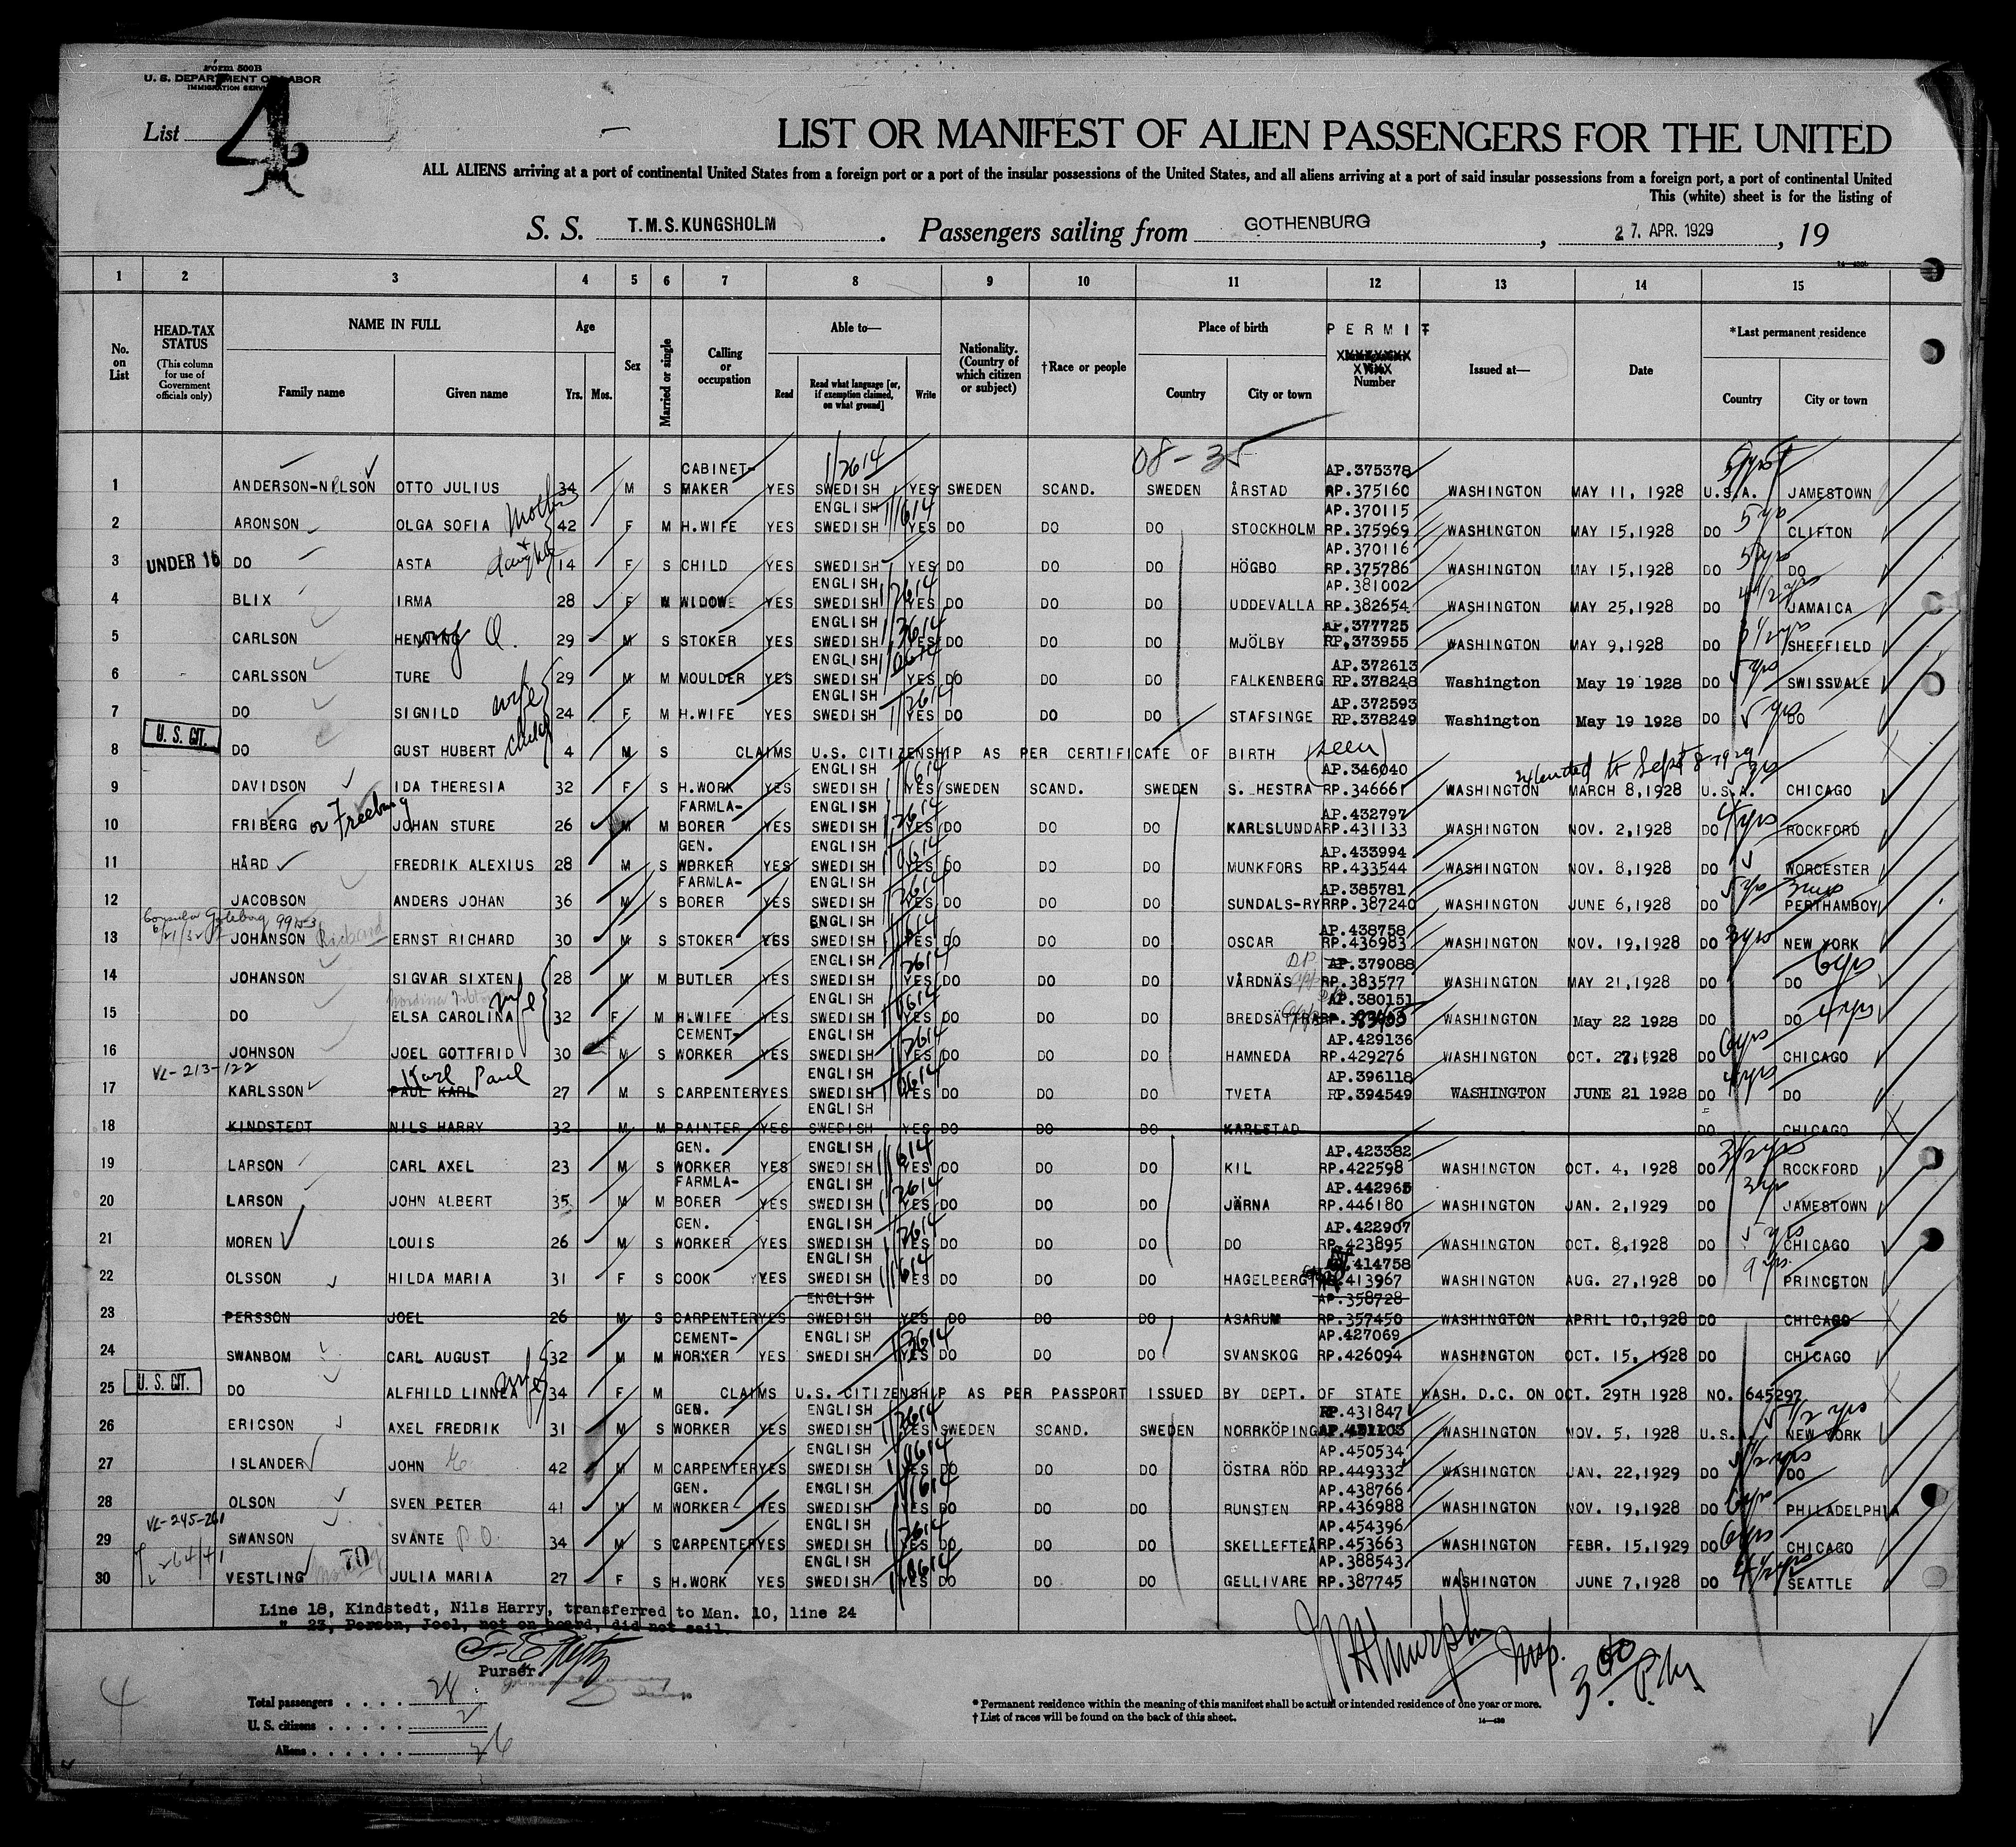 Form 500B
U. S. DEPARTMENT OF LABOR
IMMIGRATION SERVICE
List 4
LIST OR MANIFEST OF ALIEN PASSENGERS FOR THE UNITED
ALL ALIENS arriving at a port of continental United States from a foreign port or a port of the insular possessions of the United States, and all aliens arriving at a port of said insular possessions from a foreign port, a port of continental United
This (white) sheet is for the listing of
S. S. T.M.S.KUNGSHOLM. Passengers sailing from GOTHENBURG, 27. APR. 1929, 19
1 2 3 4 5 6 7 8 9 10 11 12 13 14 15
No. on List
HEAD-TAX STATUS (This column for use of Government officials only)
NAME IN FULL Family name Given name
Age Yrs. Mos.
Sex
Married or single
Calling or occupation
Able to— Read Read what language [or, if exemption claimed, on what ground] Write
Nationality. (Country of which citizen or subject)
†Race or people
Place of birth Country City or town
PERMIT Number
Issued at—
Date
*Last permanent residence Country City or town
08-35
CABINET- 1/2614 AP.375378 5 yrs
1 ANDERSON-NILSON OTTO JULIUS 34 M S MAKER YES SWEDISH YES SWEDEN SCAND. SWEDEN ÅRSTAD RP.375160 WASHINGTON MAY 11, 1928 U.S.A. JAMESTOWN
Mother ENGLISH AP.370115 5 yrs
2 ARONSON OLGA SOFIA 42 F M H.WIFE YES SWEDISH YES DO DO DO STOCKHOLM RP.375969 WASHINGTON MAY 15,1928 DO CLIFTON
AP.370116 5 yrs
3 UNDER 16 DO ASTA daughter 14 F S CHILD YES SWEDISH YES DO DO DO HÖGBO RP.375786 WASHINGTON MAY 15,1928 DO DO
ENGLISH AP.381002 4 1/2 yrs
4 BLIX IRMA 28 F W WIDOWE YES SWEDISH YES DO DO DO UDDEVALLA RP.382654 WASHINGTON MAY 25,1928 DO JAMAICA
ENGLISH AP.377725 3 1/2 yrs
5 CARLSON HENNING O. 29 M S STOKER YES SWEDISH YES DO DO DO MJÖLBY RP.373955 WASHINGTON MAY 9,1928 DO SHEFFIELD
ENGLISH AP.372613 5 yrs
6 CARLSSON TURE 29 M M MOULDER YES SWEDISH YES DO DO DO FALKENBERG RP.378248 Washington May 19 1928 DO SWISSVALE
ENGLISH AP.372593 5 yrs
7 DO SIGNILD wife 24 F M H.WIFE YES SWEDISH YES DO DO DO STAFSINGE RP.378249 Washington May 19 1928 DO DO
U. S. CIT.
8 DO GUST HUBERT child 4 M S CLAIMS U.S. CITIZENSHIP AS PER CERTIFICATE OF BIRTH (seen)
ENGLISH AP.346040 extended to Sept 8-1929
9 DAVIDSON IDA THERESIA 32 F S H.WORK YES SWEDISH YES SWEDEN SCAND. SWEDEN S. HESTRA RP.346661 WASHINGTON MARCH 8,1928 U.S.A. CHICAGO
FARMLA- ENGLISH AP.432797 4 yrs
10 FRIBERG or Freeburg JOHAN STURE 26 M M BORER YES SWEDISH YES DO DO DO KARLSLUNDA RP.431133 WASHINGTON NOV. 2,1928 DO ROCKFORD
GEN. ENGLISH AP.433994
11 HÅRD FREDRIK ALEXIUS 28 M S WORKER YES SWEDISH YES DO DO DO MUNKFORS RP.433544 WASHINGTON NOV. 8,1928 DO WORCESTER
FARMLA- ENGLISH AP.385781 5 yrs
12 JACOBSON ANDERS JOHAN 36 M S BORER YES SWEDISH YES DO DO DO SUNDALS-RYR RP.387240 WASHINGTON JUNE 6,1928 DO PERTHAMBOY
ENGLISH AP.438758 3 yrs
13 JOHANSON Richard ERNST RICHARD 30 M S STOKER YES SWEDISH YES DO DO DO OSCAR RP.436983 WASHINGTON NOV. 19,1928 DO NEW YORK
ENGLISH AP.379088 6 yrs
14 JOHANSON SIGVAR SIXTEN 28 M M BUTLER YES SWEDISH YES DO DO DO VÅRDNÄS RP.383577 WASHINGTON MAY 21,1928 DO DO
ENGLISH AP.380151 4 yrs
15 DO ELSA CAROLINA wife 32 F M H.WIFE YES SWEDISH YES DO DO DO BREDSÄTTRA WASHINGTON May 22 1928 DO DO
CEMENT- ENGLISH AP.429136 6 yrs
16 JOHNSON JOEL GOTTFRID 30 M S WORKER YES SWEDISH YES DO DO DO HAMNEDA RP.429276 WASHINGTON OCT. 27,1928 DO CHICAGO
VL-213-122 Karl Paul ENGLISH AP.396118 4 yrs
17 KARLSSON PAUL KARL 27 M S CARPENTER YES SWEDISH YES DO DO DO TVETA RP.394549 WASHINGTON JUNE 21 1928 DO DO
ENGLISH
18 KINDSTEDT NILS HARRY 32 M M PAINTER YES SWEDISH YES DO DO DO KARLSTAD DO CHICAGO
GEN. ENGLISH AP.423382 3 1/2 yrs
19 LARSON CARL AXEL 23 M S WORKER YES SWEDISH YES DO DO DO KIL RP.422598 WASHINGTON OCT. 4, 1928 DO ROCKFORD
FARMLA- ENGLISH AP.442965 3 yr
20 LARSON JOHN ALBERT 35 M M BORER YES SWEDISH YES DO DO DO JÄRNA RP.446180 WASHINGTON JAN. 2,1929 DO JAMESTOWN
GEN. ENGLISH AP.422907 5 yrs
21 MOREN LOUIS 26 M S WORKER YES SWEDISH YES DO DO DO DO RP.423895 WASHINGTON OCT. 8,1928 DO CHICAGO
ENGLISH 414758 9 yrs.
22 OLSSON HILDA MARIA 31 F S COOK YES SWEDISH YES DO DO DO HAGELBERG 413967 WASHINGTON AUG. 27,1928 DO PRINCETON
ENGLISH AP.358728
23 PERSSON JOEL 26 M S CARPENTER YES SWEDISH YES DO DO DO ASARUM RP.357450 WASHINGTON APRIL 10,1928 DO CHICAGO
CEMENT- ENGLISH AP.427069
24 SWANBOM CARL AUGUST 32 M M WORKER YES SWEDISH YES DO DO DO SVANSKOG RP.426094 WASHINGTON OCT. 15, 1928 DO CHICAGO
U. S. CIT.
25 DO ALFHILD LINNEA wife 34 F M CLAIMS U.S. CITIZENSHIP AS PER PASSPORT ISSUED BY DEPT. OF STATE WASH. D.C. ON OCT. 29TH 1928 NO. 645297
GEN. ENGLISH RP.431847 5 1/2 yrs
26 ERICSON AXEL FREDRIK 31 M S WORKER YES SWEDISH YES SWEDEN SCAND. SWEDEN NORRKÖPING WASHINGTON NOV. 5, 1928 U.S.A. NEW YORK
ENGLISH AP.450534 5 1/2 yrs
27 ISLANDER JOHN 42 M M CARPENTER YES SWEDISH YES DO DO DO ÖSTRA RÖD RP.449332 WASHINGTON JAN. 22,1929 DO DO
GEN. ENGLISH AP.438766 6 yrs
28 OLSON SVEN PETER 41 M M WORKER YES SWEDISH YES DO DO DO RUNSTEN RP.436988 WASHINGTON NOV. 19,1928 DO PHILADELPHIA
VL-245-261 ENGLISH AP.454396 6 yrs
29 SWANSON SVANTE P.O. 34 M S CARPENTER YES SWEDISH YES DO DO DO SKELLEFTEÅ RP.453663 WASHINGTON FEBR. 15,1929 DO CHICAGO
ENGLISH AP.388543 4 1/2 yrs
30 VESTLING JULIA MARIA 27 F S H.WORK YES SWEDISH YES DO DO DO GELLIVARE RP.387745 WASHINGTON JUNE 7,1928 DO SEATTLE
Line 18, Kindstedt, Nils Harry, transferred to Man. 10, line 24
" 23, Person, Joel, not on board, did not sail.
Purser.
Murphy Insp. 3 00 P.M.
4
Total passengers . . . . 28
U. S. citizens . . . . . 2
Aliens . . . . . . 26
* Permanent residence within the meaning of this manifest shall be actual or intended residence of one year or more.
† List of races will be found on the back of this sheet.